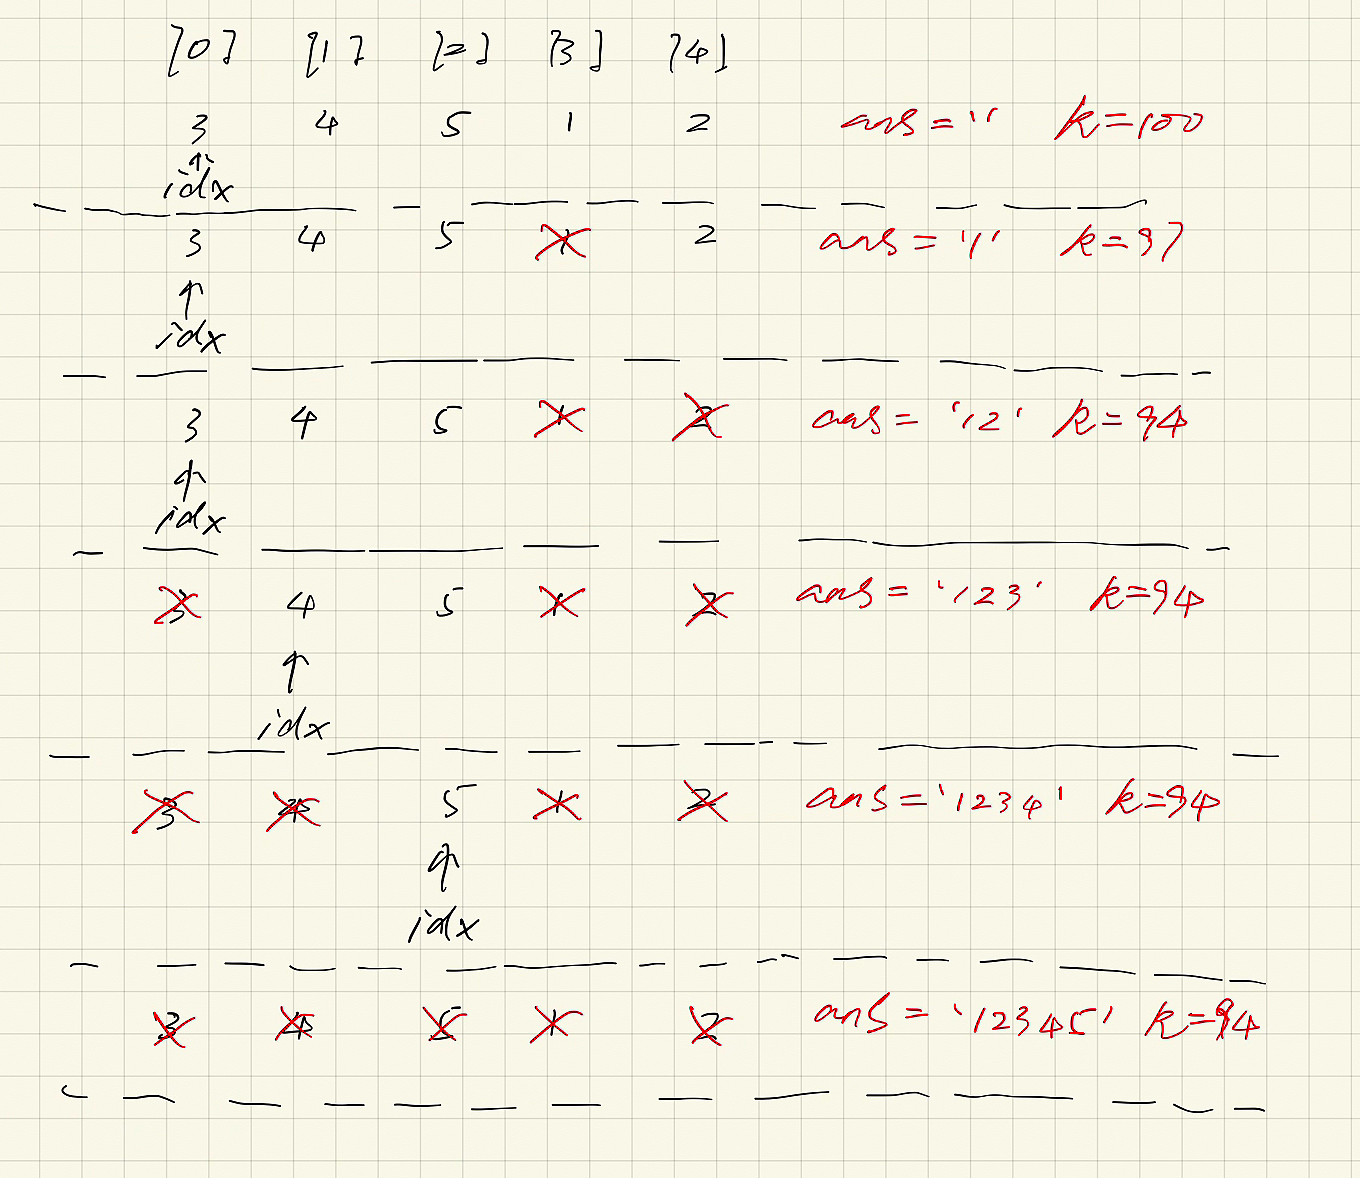 [0] [1] [2] [3] [4]
3 4 5 1 2 ans = '' k=100
idx
3 4 5 1 2 ans = '1' k=97
idx
3 4 5 1 2 ans = '12' k=94
idx
3 4 5 1 2 ans = '123' k=94
idx
3 4 5 1 2 ans = '1234' k=94
idx
3 4 5 1 2 ans = '12345' k=94